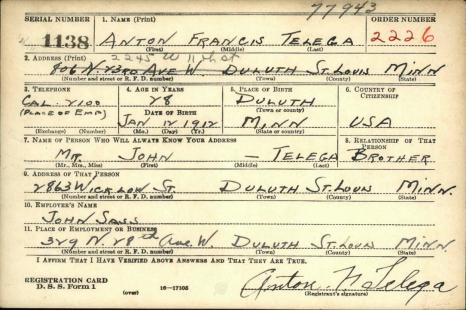 77943
SERIAL NUMBER 1. NAME (Print) ORDER NUMBER
1138 ANTON FRANCIS TELEGA 2226
(First) (Middle) (Last)
2. ADDRESS (Print) 2245 W 11th st
806 N. 43RD AVE W. DULUTH ST. LOUIS MINN
(Number and street or R. F. D. number) (Town) (County) (State)
3. TELEPHONE 4. AGE IN YEARS 5. PLACE OF BIRTH 6. COUNTRY OF CITIZENSHIP
CAL. 2100 28 DULUTH
(PLACE OF EMP) DATE OF BIRTH (Town or county)
JAN 12 1912 MINN USA
(Exchange) (Number) (Mo.) (Day) (Yr.) (State or country)
7. NAME OF PERSON WHO WILL ALWAYS KNOW YOUR ADDRESS 8. RELATIONSHIP OF THAT PERSON
MR. JOHN — TELEGA BROTHER
(Mr., Mrs., Miss) (First) (Middle) (Last)
9. ADDRESS OF THAT PERSON
2863 WICKLOW ST. DULUTH ST. LOUIS MINN.
(Number and street or R. F. D. number) (Town) (County) (State)
10. EMPLOYER'S NAME
JOHN
11. PLACE OF EMPLOYMENT OR BUSINESS
329 N. 28 AVE. W. DULUTH ST. LOUIS MINN.
(Number and street or R. F. D. number) (Town) (County) (State)
I AFFIRM THAT I HAVE VERIFIED ABOVE ANSWERS AND THAT THEY ARE TRUE.
REGISTRATION CARD
D. S. S. Form 1 (over) 16—17105 Anton F. Telega
(Registrant's signature)